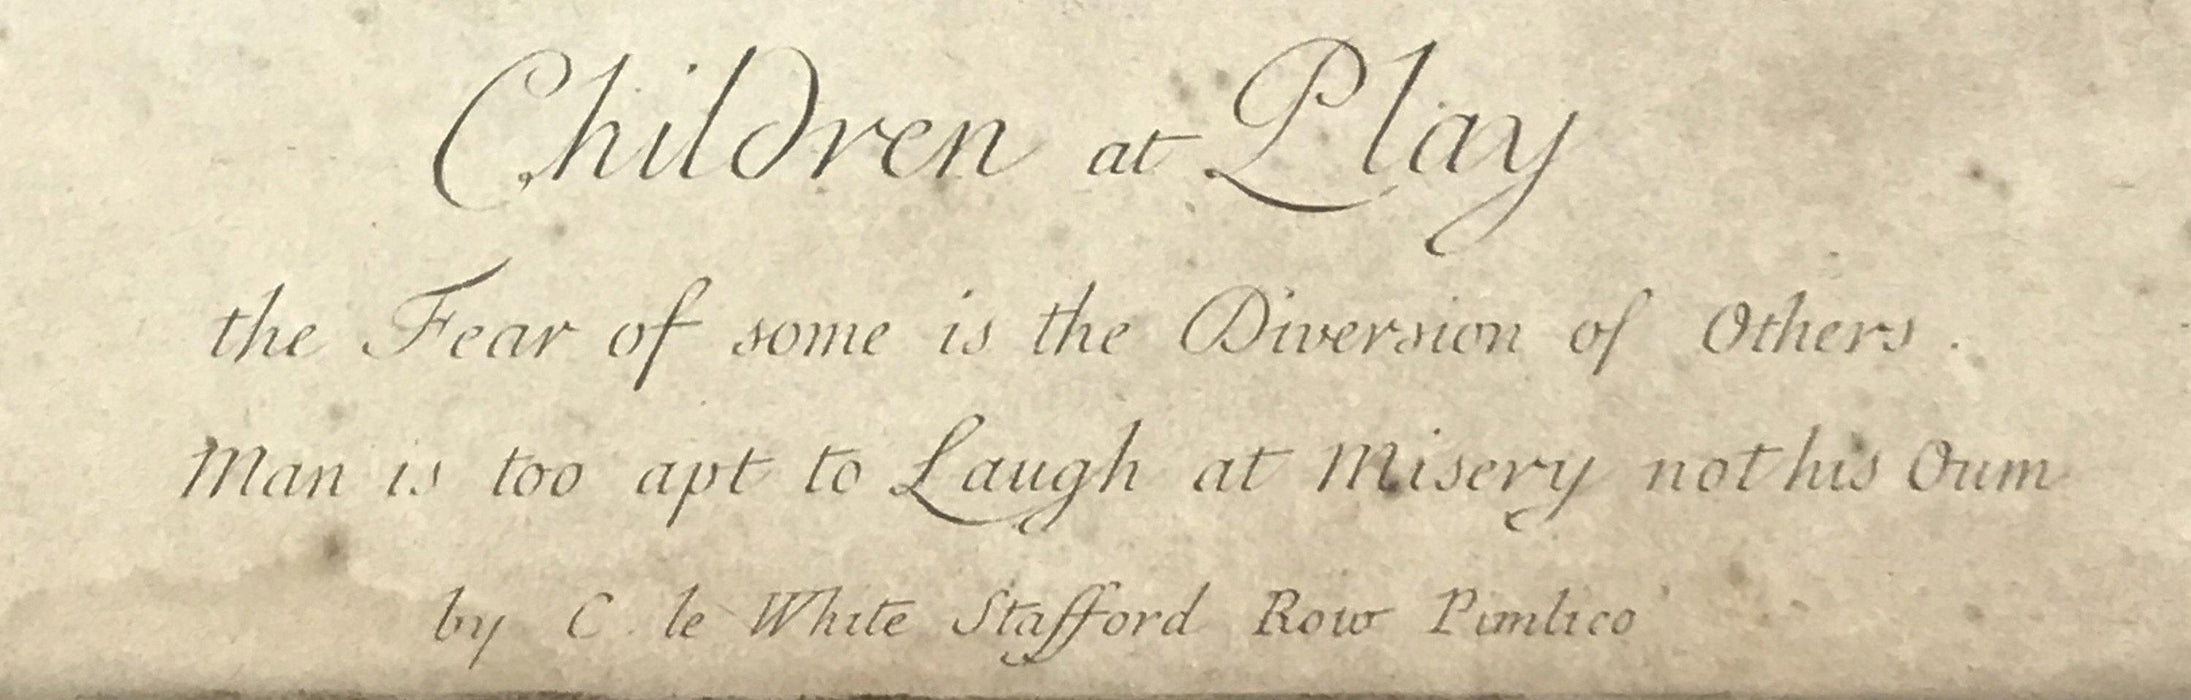 Children at Play
the Fear of some is the Diversion of Others.
Man is too apt to Laugh at Misery not his Oum
by C. le White Stafford Row Pimlico